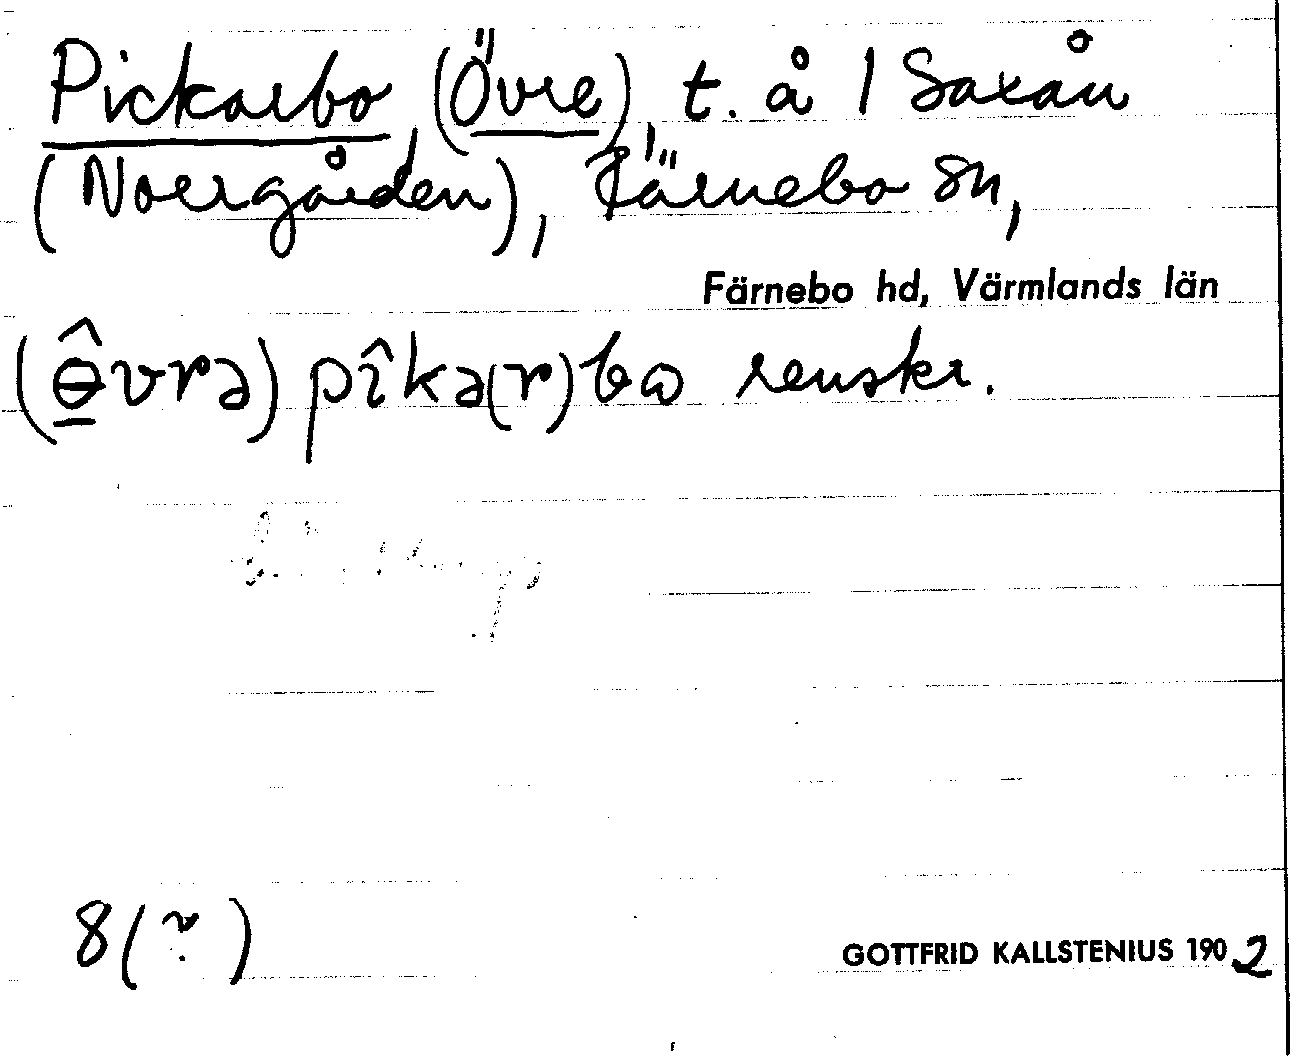 Pickarbo, (Övre), t. å 1 Saxån
(Norrgården), Färnebo sn,
Färnebo hd, Värmlands län
(ɵ̲̂vrə) pîkə(r)bω renskr.
8(~)
GOTTFRID KALLSTENIUS 1902